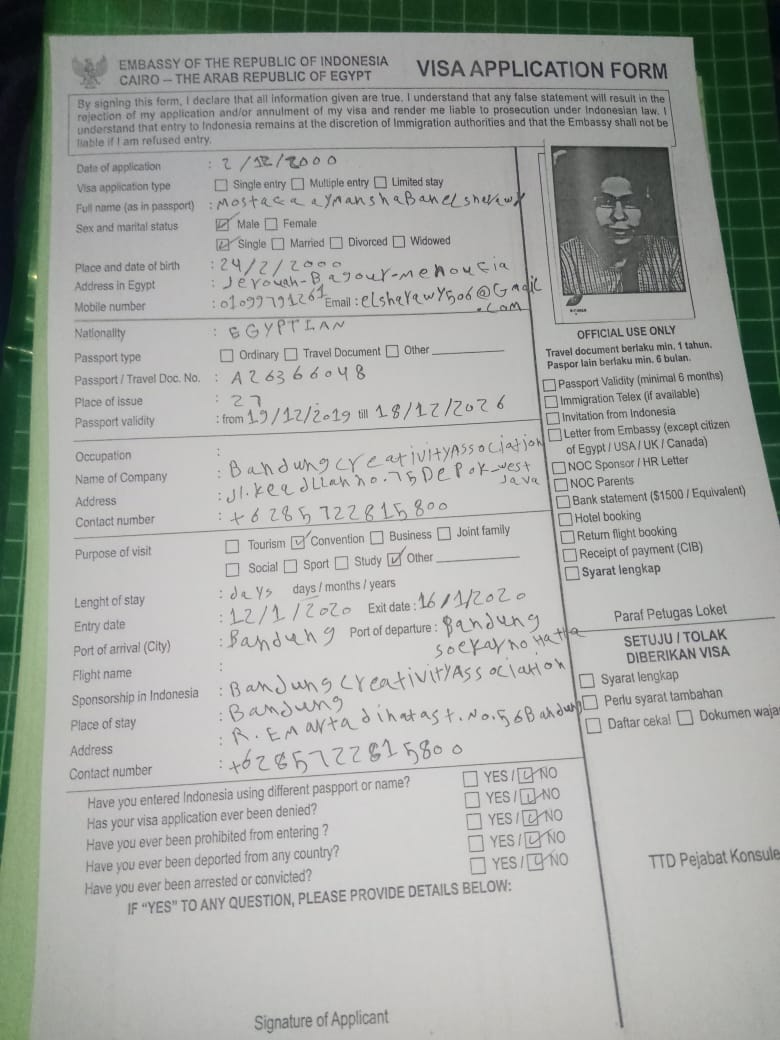 EMBASSY OF THE REPUBLIC OF INDONESIA
CAIRO – THE ARAB REPUBLIC OF EGYPT
VISA APPLICATION FORM
By signing this form, I declare that all information given are true. I understand that any false statement will result in the
rejection of my application and/or annulment of my visa and render me liable to prosecution under Indonesian law. I
understand that entry to Indonesia remains at the discretion of Immigration authorities and that the Embassy shall not be
liable if I am refused entry.
Date of application : 2/12/2000
Visa application type Single entry Multiple entry Limited stay
Full name (as in passport) : Mostafa aymanshaBanelsherawy
Sex and marital status Male Female
Single Married Divorced Widowed
Place and date of birth : 24/2/2000
Address in Egypt : Jerowah-Bagour-menoufia
Mobile number : 01099791261 Email : elsharawy506@Gmail
.com
Nationality : EGYPTIAN
Passport type Ordinary Travel Document Other
Passport / Travel Doc. No. : A26366048
Place of issue : 27
Passport validity : from 19/12/2019 till 18/12/2026
Occupation :
Name of Company : BandungcreativityAssociation
Address : Jl. no.75 DePok-west
Java
Contact number : +6285722815800
Purpose of visit Tourism Convention Business Joint family
Social Sport Study Other
Lenght of stay : days days / months / years
Entry date : 12/1/2020 Exit date : 16/1/2020
Port of arrival (City) : Bandung Port of departure : Bandung
soekarno Hatta
Flight name :
Sponsorship in Indonesia : BandungcreativityAssociation
Place of stay : Bandung
Address : R.EMartadinatast.No.56Bandung
Contact number : +6285722815800
Have you entered Indonesia using different paspport or name? YES / NO
Has your visa application ever been denied? YES / NO
Have you ever been prohibited from entering ? YES / NO
Have you ever been deported from any country? YES / NO
Have you ever been arrested or convicted? YES / NO
IF "YES" TO ANY QUESTION, PLEASE PROVIDE DETAILS BELOW:
Signature of Applicant
OFFICIAL USE ONLY
Travel document berlaku min. 1 tahun.
Paspor lain berlaku min. 6 bulan.
Passport Validity (minimal 6 months)
Immigration Telex (if available)
Invitation from Indonesia
Letter from Embassy (except citizen
of Egypt / USA / UK / Canada)
NOC Sponsor / HR Letter
NOC Parents
Bank statement ($1500 / Equivalent)
Hotel booking
Return flight booking
Receipt of payment (CIB)
Syarat lengkap
Paraf Petugas Loket
SETUJU / TOLAK
DIBERIKAN VISA
Syarat lengkap
Perlu syarat tambahan
Daftar cekal Dokumen waja
TTD Pejabat Konsule